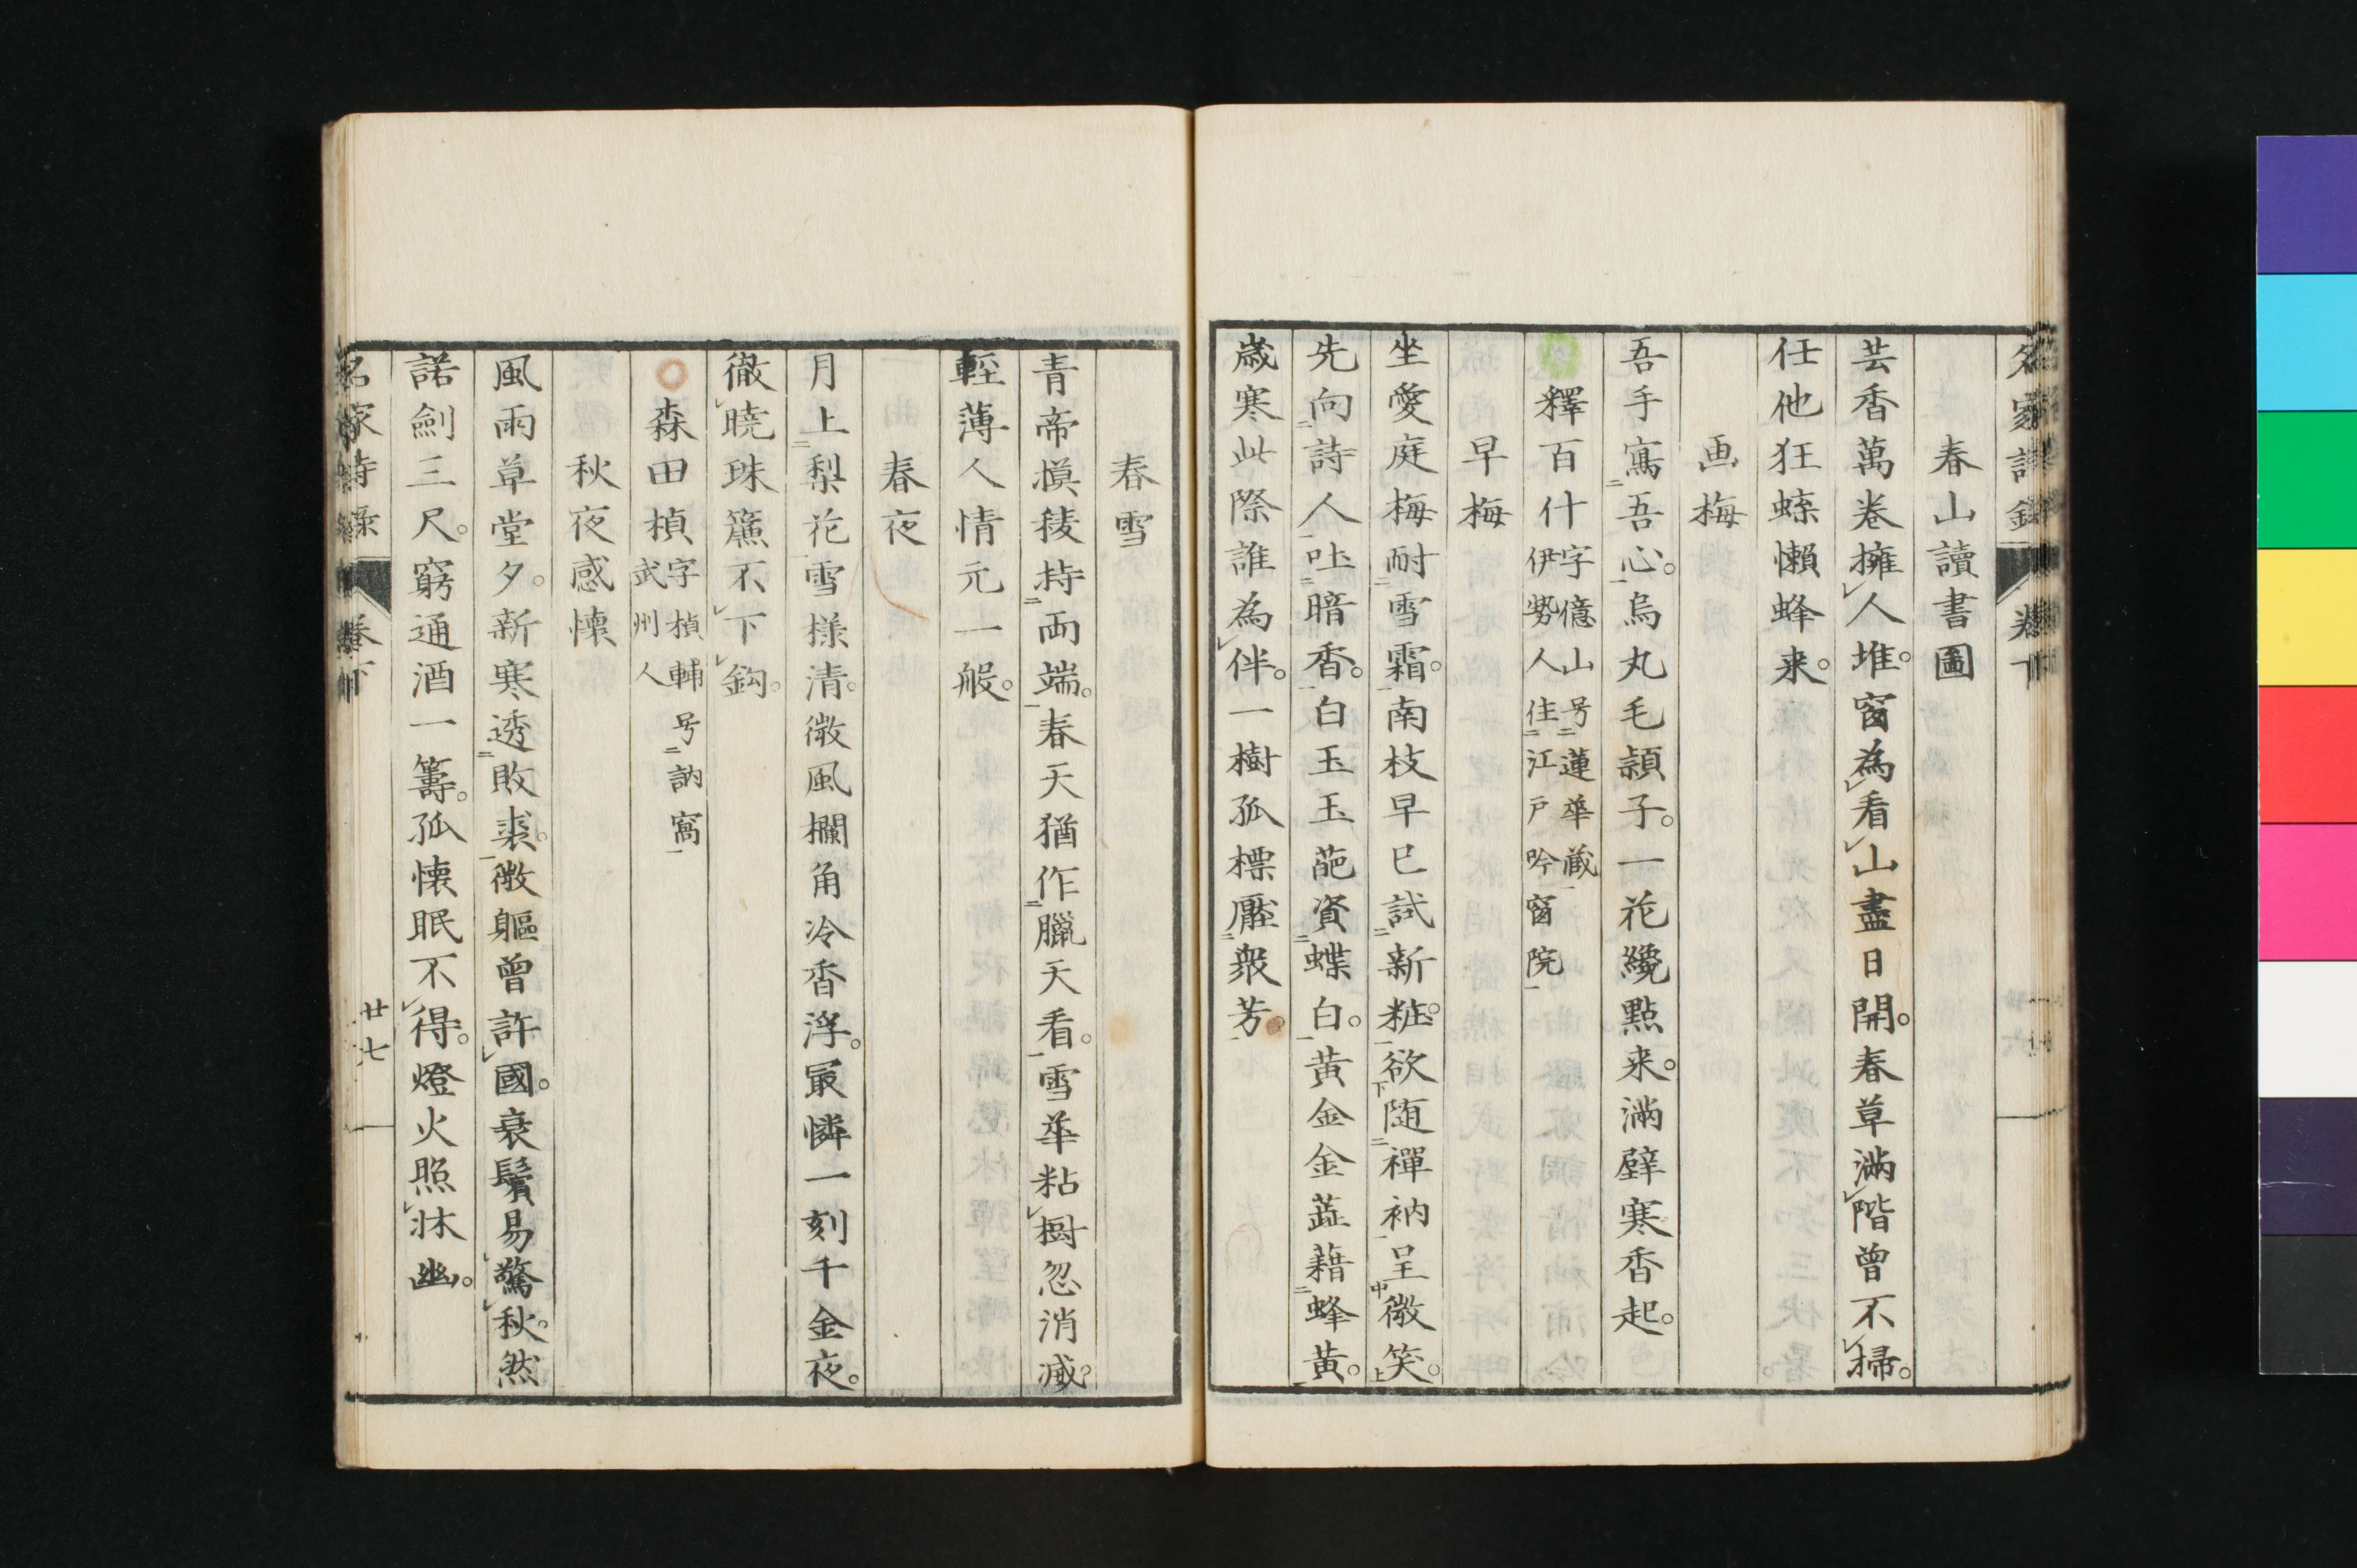 名家詩録 卷下
春山讀書圖
芸香萬卷擁人堆。窗為看山盡日開。春草滿階曾不掃。
任他狂蝶懶蜂来。
画梅
吾手寫二吾心。一烏丸毛頴子。一花纔點来。滿壁寒香起。
釋百什 字億山号二蓮華藏一
伊勢人住二江戸吟窗院一
早梅
坐愛庭梅耐二雪霜。一南枝早已試二新粧。一欲下随二禪衲一呈中微笑。上
先向二詩人一吐二暗香。一白玉玉葩資二蝶白。一黄金金蕋藉二蜂黄。一
歳寒此際誰為伴。一樹孤標壓二衆芳。一
春雪
青帝摸稜持二両端。一春天猶作二臘天看。一雪華粘樹忽消减。
輕薄人情元一般。
春夜
月上二梨花一雪様清。微風欄角冷香浮。最憐一刻千金夜。
徹曉珠簾不下鈎。
森田楨 字楨輔号二訥窩一
武州人
秋夜感懷
風雨草堂夕。新寒透二敗裘。一微軀曾許國。衰鬢易驚秋。然
諾劍三尺。窮通酒一籌。孤懷眠不得。燈火照牀幽。
名家詩録 卷下 廿七